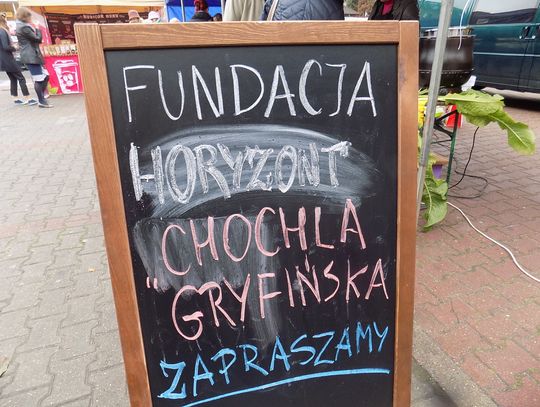 FUNDACJA
HORYZONT
CHOCHLA
"GRYFIŃSKA
ZAPRASZAMY